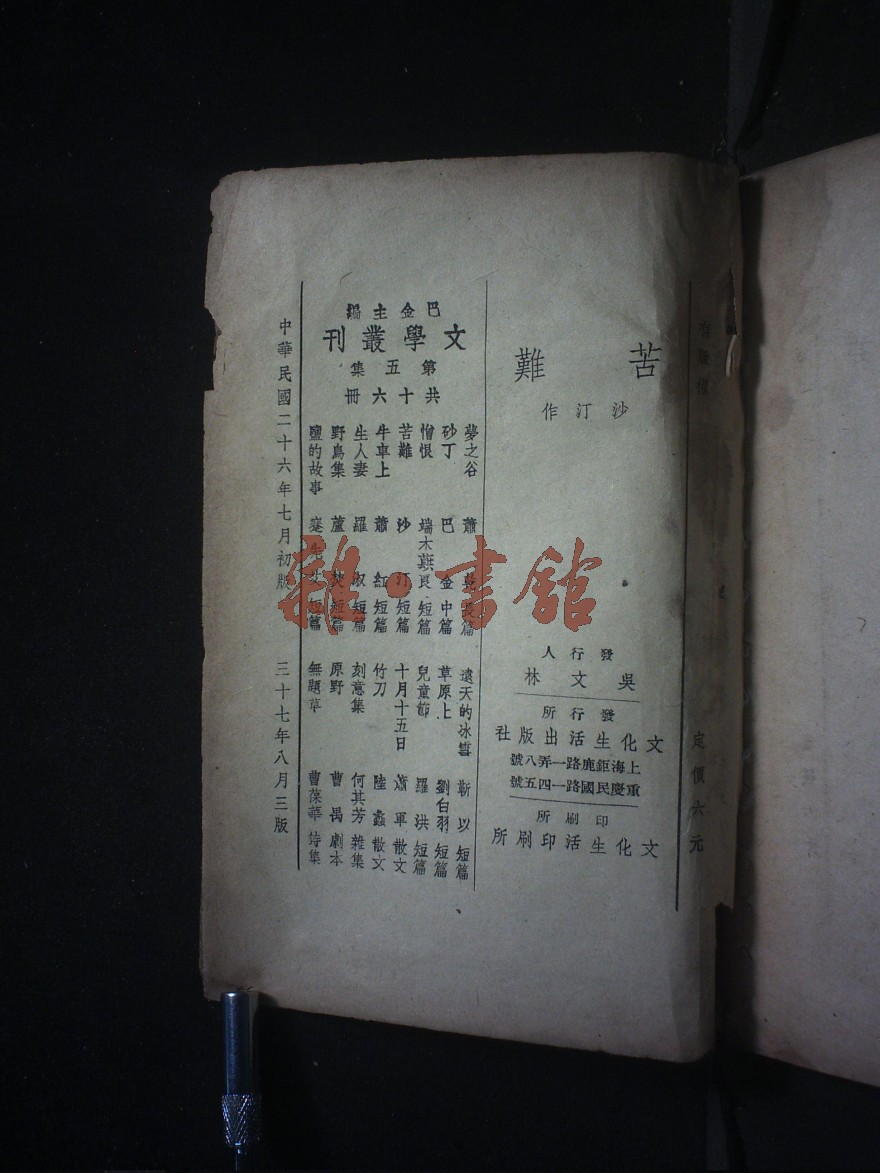 定價六元
苦難
沙汀作
發行人
吳文林
發行所
文化生活出版社
上海鉅鹿路一弄八號
重慶民國路一四五號
印刷所
文化生活印刷所
巴金主編
文學叢刊
第五集
共十六冊
夢之谷 蕭乾 長篇
砂丁 巴金 中篇
憎恨 端木蕻良 短篇
苦難 沙汀 短篇
牛車上 蕭紅 短篇
生人妻 羅淑 短篇
野鳥集 蘆焚 短篇
鹽的故事 蹇先艾 短篇
遠天的冰雪 靳以 短篇
草原上 劉白羽 短篇
兒童節 羅洪 短篇
十月十五日 蕭軍 散文
竹刀 陸蠡 散文
刻意集 何其芳 雜集
原野 曹禺 劇本
無題草 曹葆華 詩集
中華民國二十六年七月初版
三十七年八月三版
雜·書館